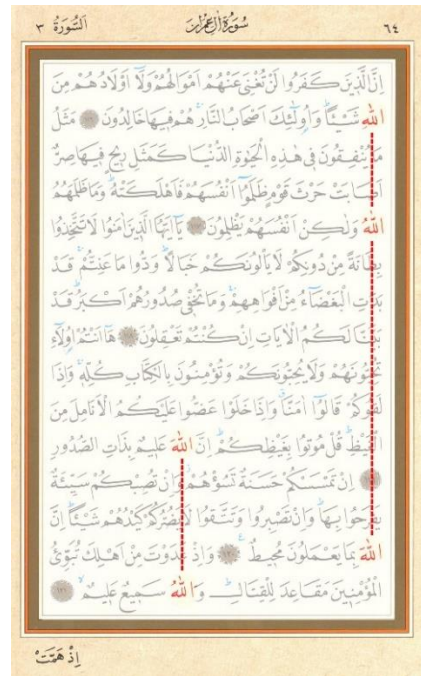 ٦٤ سُورَةُ اٰلِ عِمْرٰنَ اَلسُّورَةُ ٣
اِنَّ الَّذٖينَ كَفَرُوا لَنْ تُغْنِيَ عَنْهُمْ اَمْوَالُهُمْ وَلَٓا اَوْلَادُهُمْ مِنَ
اللّٰهِ شَيْـًٔا وَاُولٰٓئِكَ اَصْحَابُ النَّارِ هُمْ فٖيهَا خَالِدُونَ ﴿١١٦﴾ مَثَلُ
مَا يُنْفِقُونَ فٖي هٰذِهِ الْحَيٰوةِ الدُّنْيَا كَمَثَلِ رٖيحٍ فٖيهَا صِرٌّ
اَصَابَتْ حَرْثَ قَوْمٍ ظَلَمُٓوا اَنْفُسَهُمْ فَاَهْلَكَتْهُ وَمَا ظَلَمَهُمُ
اللّٰهُ وَلٰكِنْ اَنْفُسَهُمْ يَظْلِمُونَ ﴿١١٧﴾ يَٓا اَيُّهَا الَّذٖينَ اٰمَنُوا لَا تَتَّخِذُوا
بِطَانَةً مِنْ دُونِكُمْ لَا يَأْلُونَكُمْ خَبَالًا وَدُّوا مَا عَنِتُّمْ قَدْ
بَدَتِ الْبَغْضَٓاءُ مِنْ اَفْوَاهِهِمْ وَمَا تُخْفٖي صُدُورُهُمْ اَكْبَرُ قَدْ
بَيَّنَّا لَكُمُ الْاٰيَاتِ اِنْ كُنْتُمْ تَعْقِلُونَ ﴿١١٨﴾ هَٓا اَنْتُمْ اُولَٓاءِ
تُحِبُّونَهُمْ وَلَا يُحِبُّونَكُمْ وَتُؤْمِنُونَ بِالْكِتَابِ كُلِّهٖ وَاِذَا
لَقُوكُمْ قَالُٓوا اٰمَنَّا وَاِذَا خَلَوْا عَضُّوا عَلَيْكُمُ الْاَنَامِلَ مِنَ
الْغَيْظِ قُلْ مُوتُوا بِغَيْظِكُمْ اِنَّ اللّٰهَ عَلٖيمٌ بِذَاتِ الصُّدُورِ
﴿١١٩﴾ اِنْ تَمْسَسْكُمْ حَسَنَةٌ تَسُؤْهُمْ وَاِنْ تُصِبْكُمْ سَيِّئَةٌ
يَفْرَحُوا بِهَا وَاِنْ تَصْبِرُوا وَتَتَّقُوا لَا يَضُرُّكُمْ كَيْدُهُمْ شَيْـًٔا اِنَّ
اللّٰهَ بِمَا يَعْمَلُونَ مُحٖيطٌ ﴿١٢٠﴾ وَاِذْ غَدَوْتَ مِنْ اَهْلِكَ تُبَوِّئُ
الْمُؤْمِنٖينَ مَقَاعِدَ لِلْقِتَالِ وَاللّٰهُ سَمٖيعٌ عَلٖيمٌ ﴿١٢١﴾
اِذْ هَمَّتْ